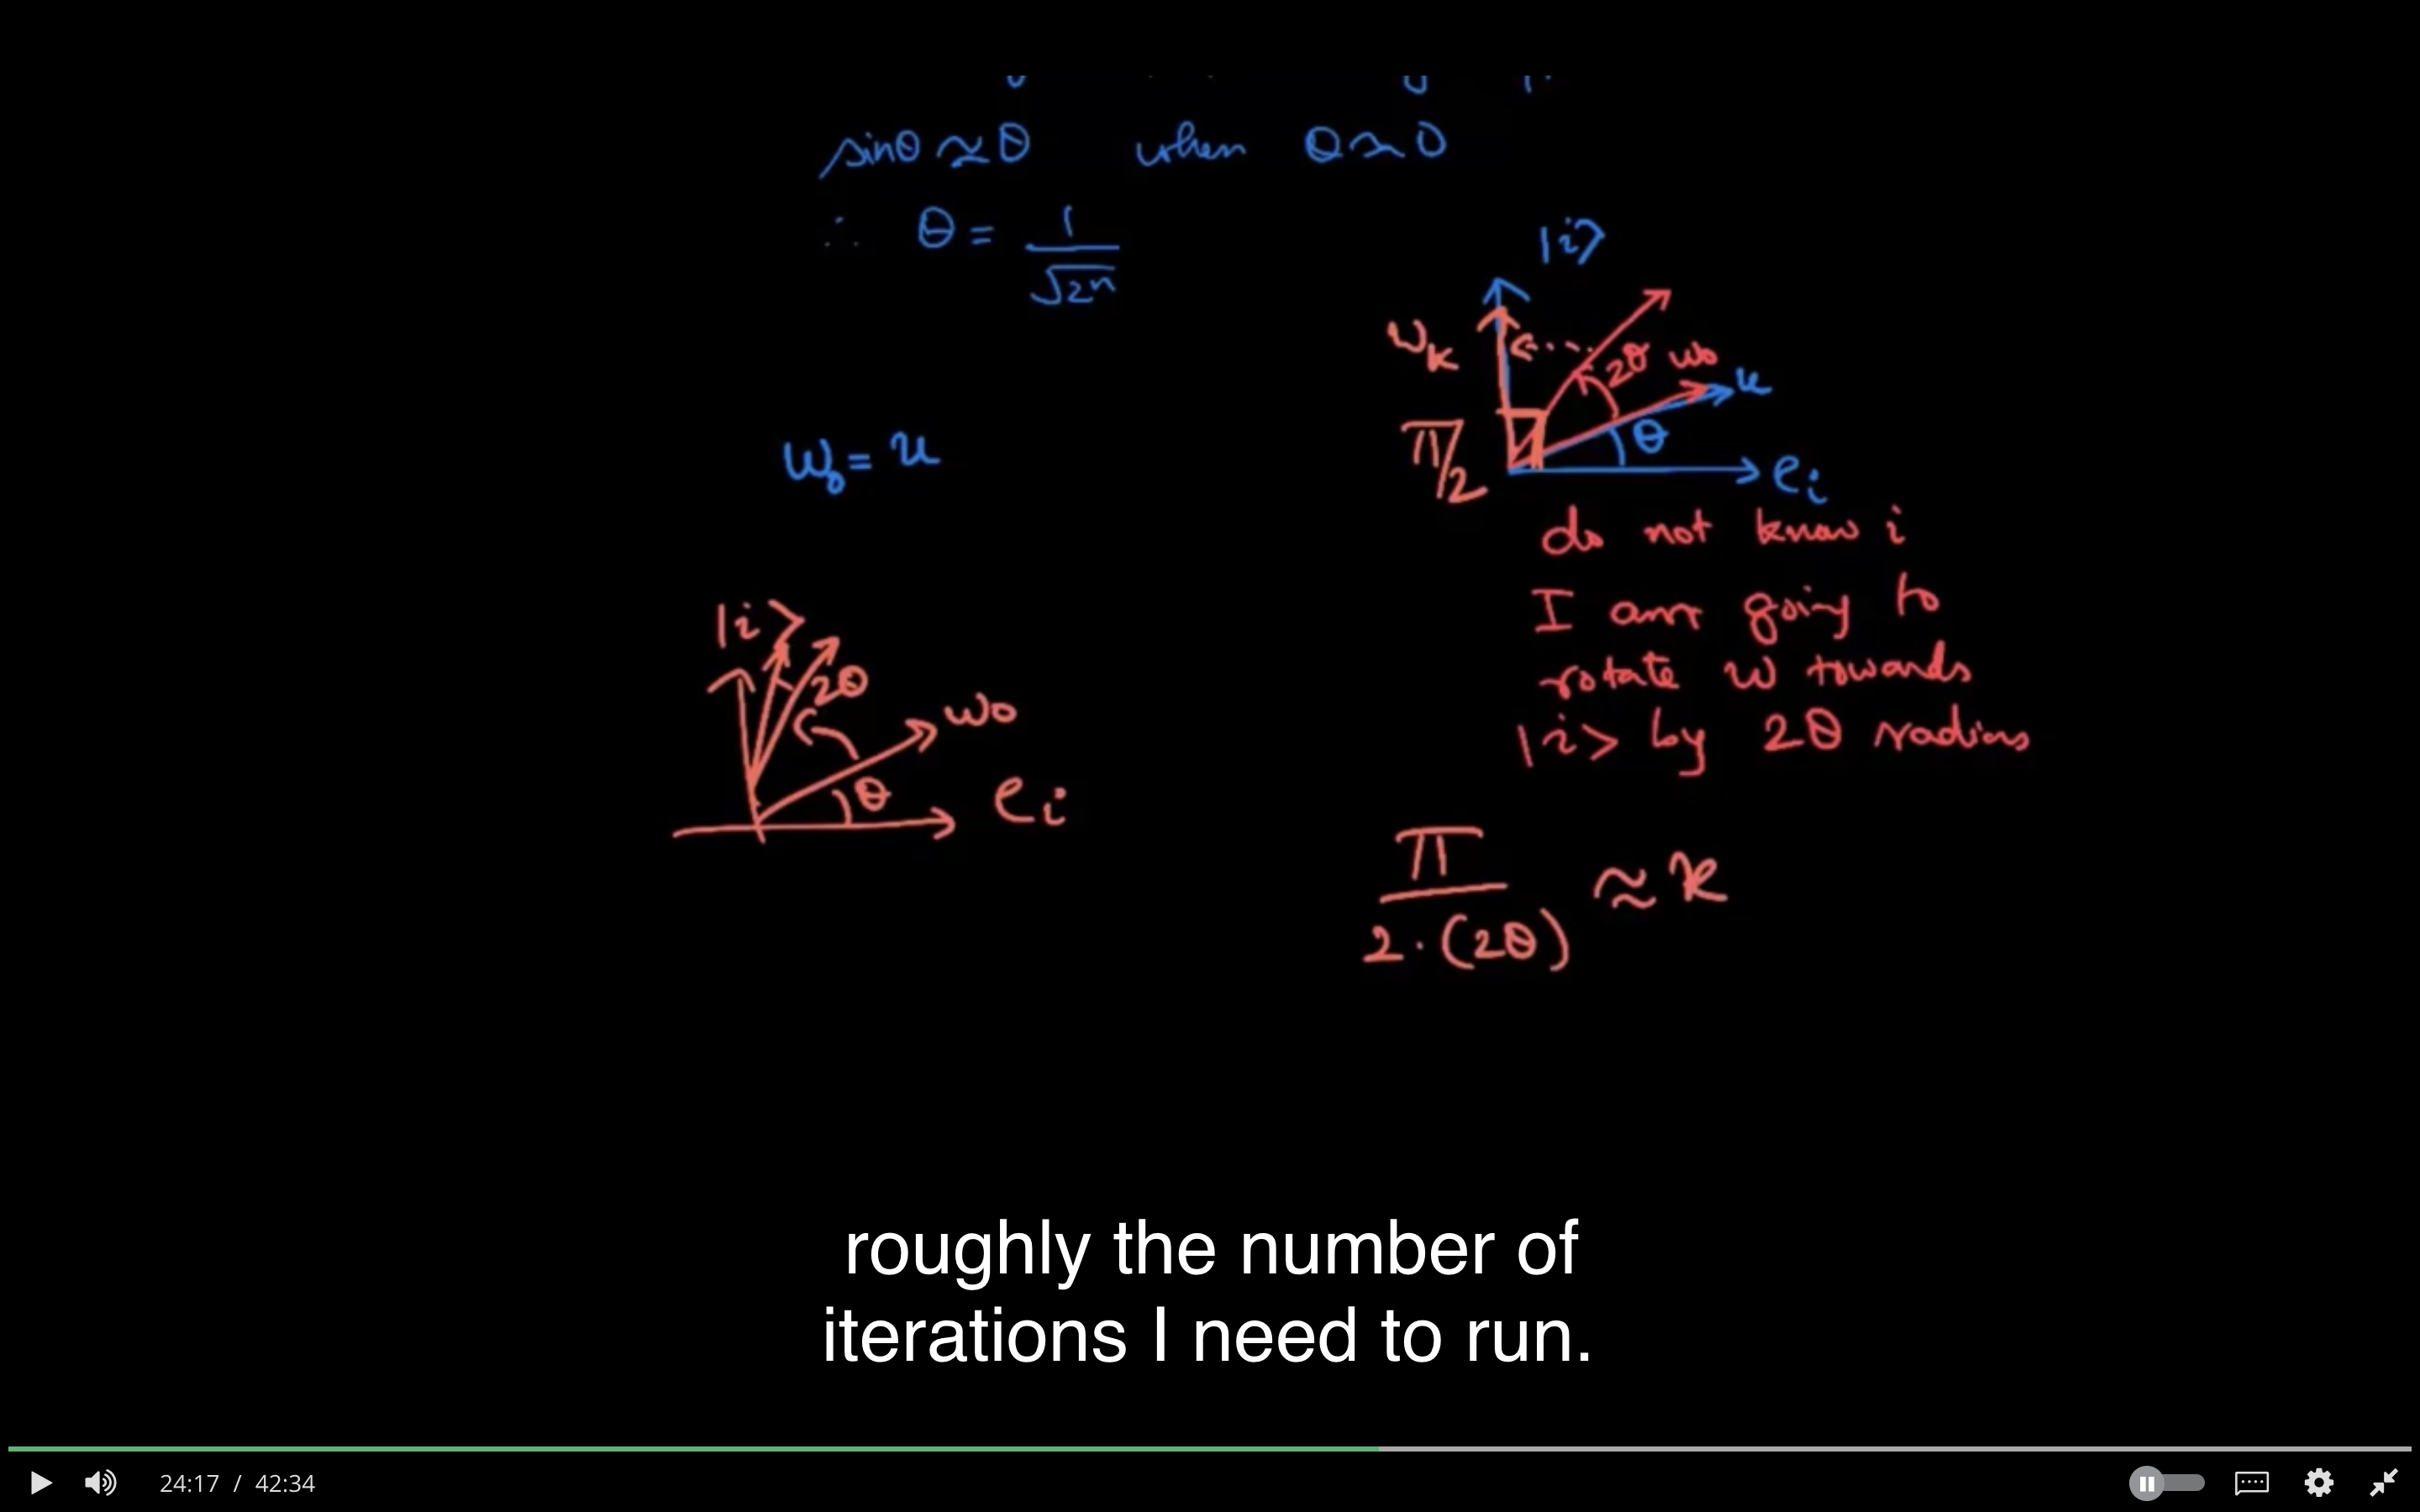 sinθ ≈ θ when θ ≈ 0
∴ θ = 1/√2ⁿ
|i⟩
w_k
2θ w₀
u
π/2
θ
e_i
w₀ = u
do not know i
I am going to
rotate w towards
|i> by 2θ radians
|i⟩
2θ
w₀
θ
e_i
π/(2·(2θ)) ≈ k
roughly the number of
iterations I need to run.
24:17 / 42:34